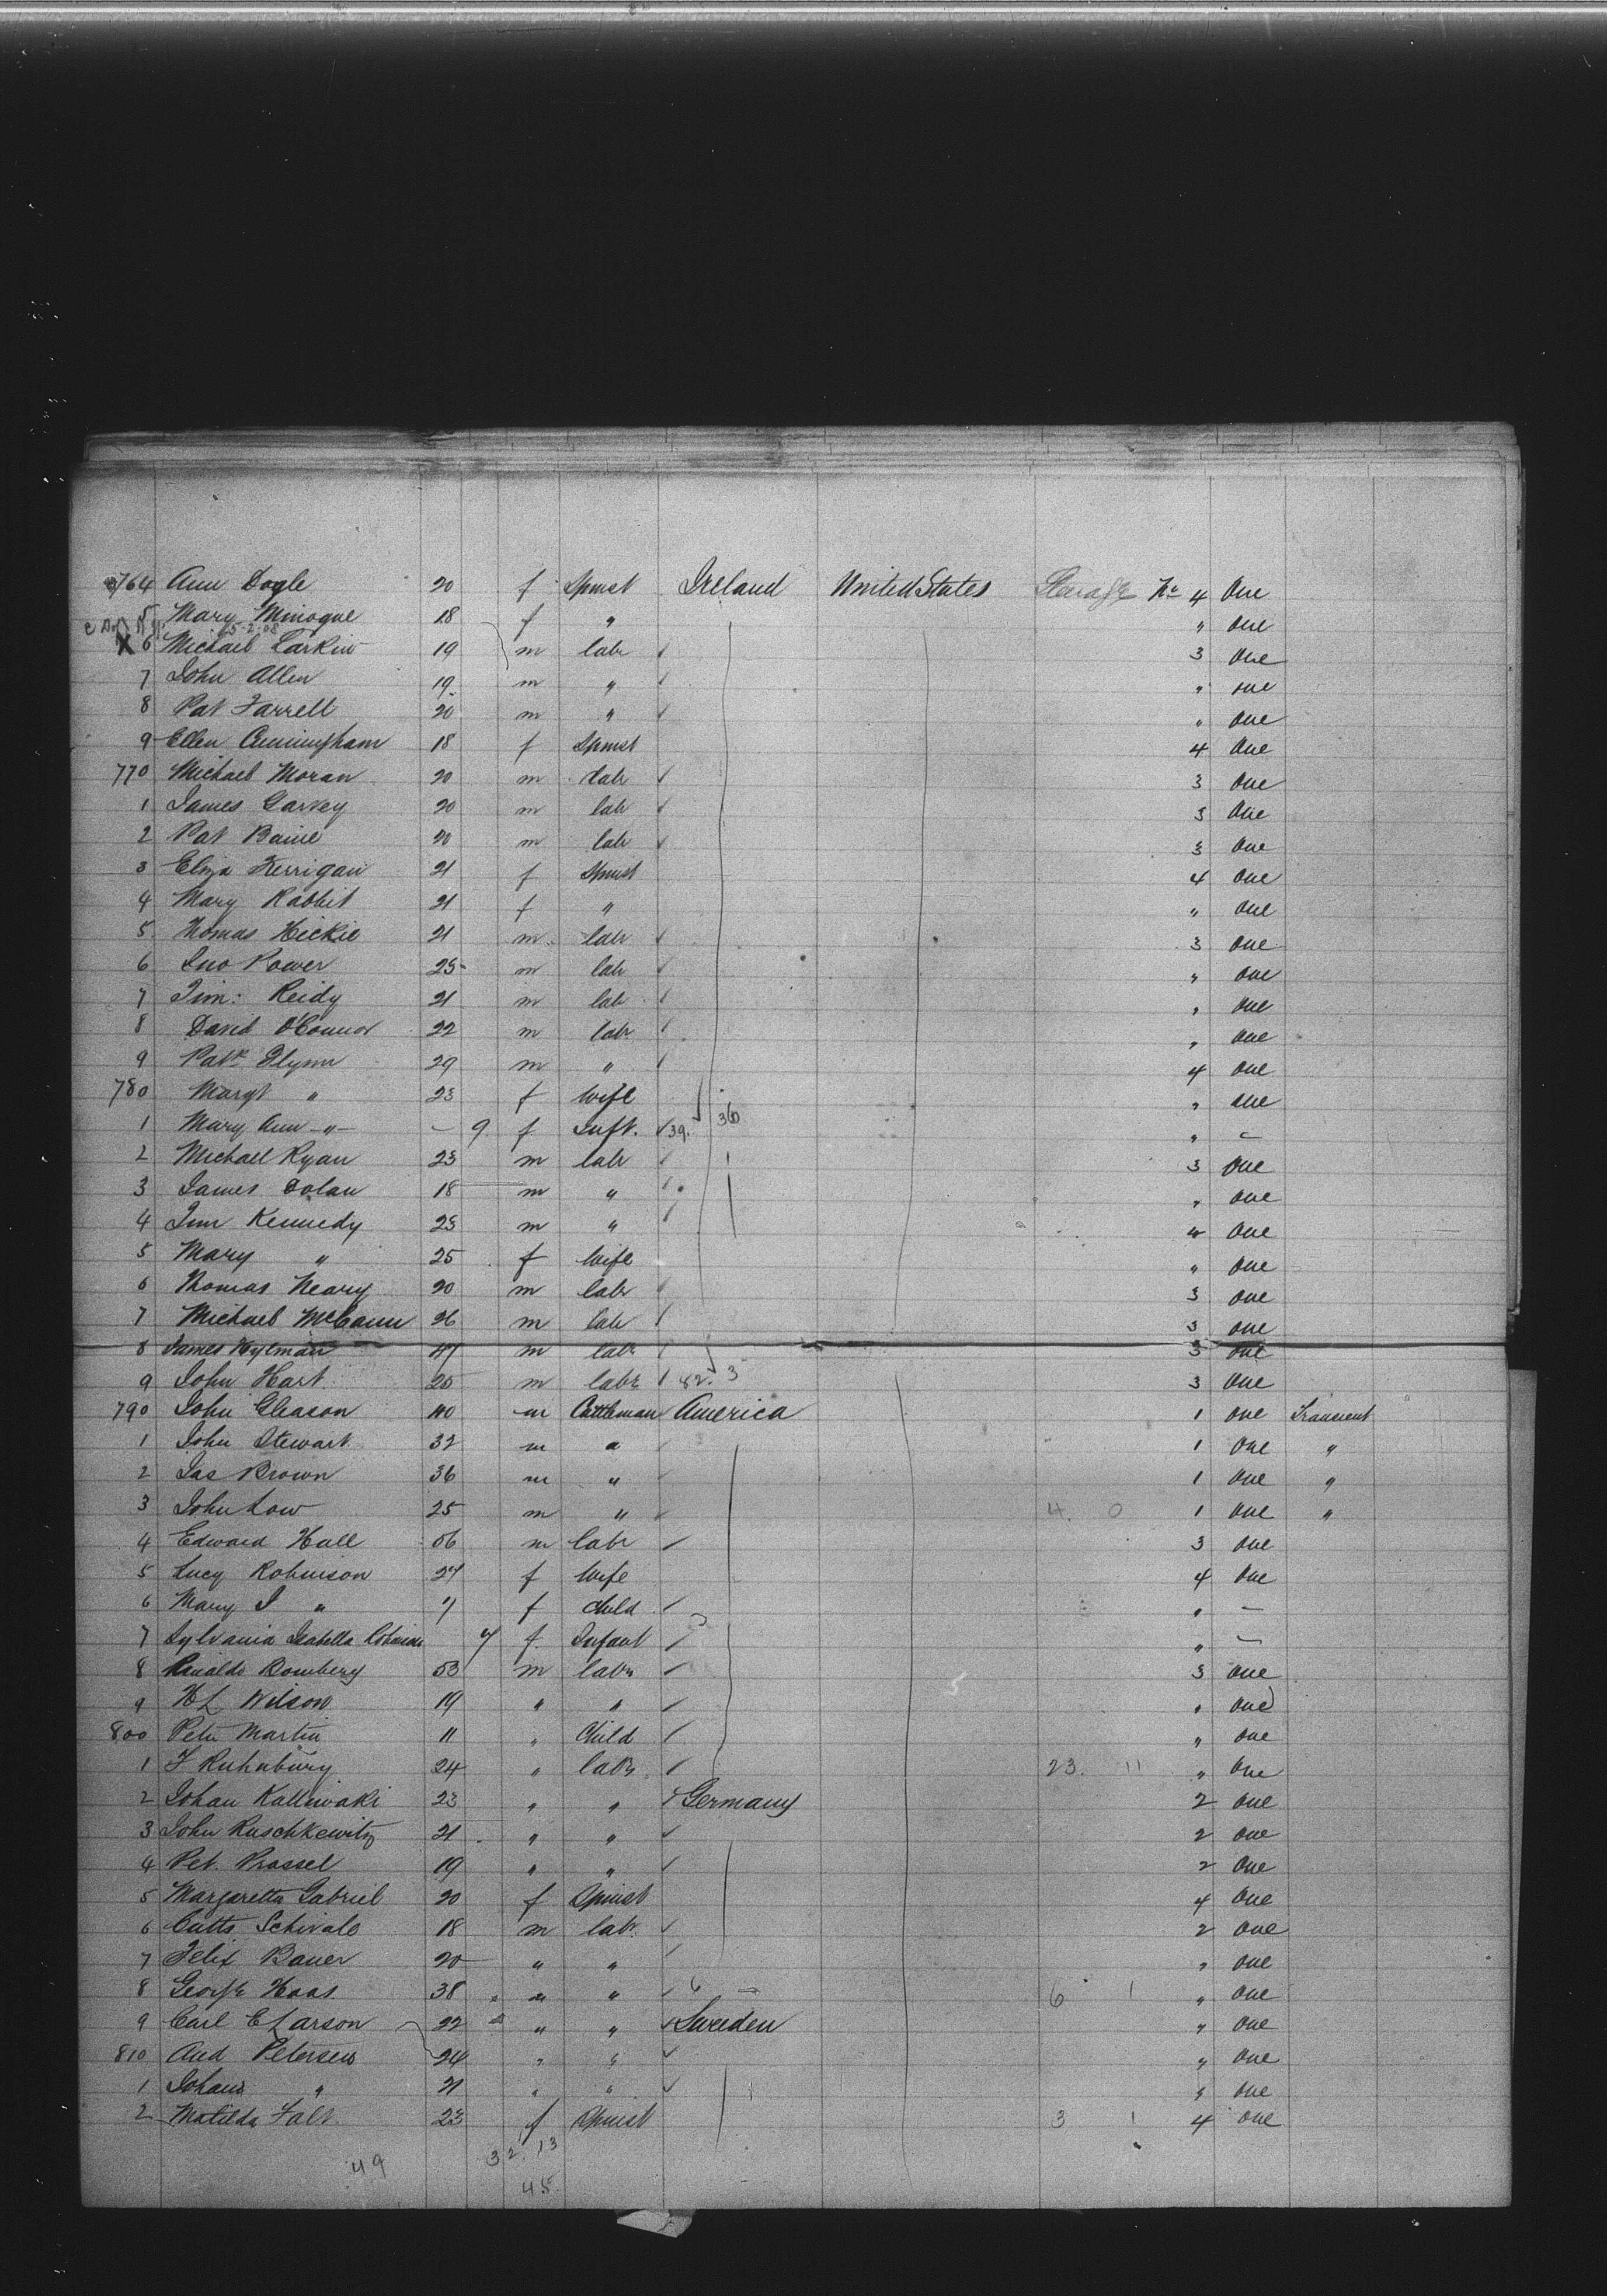 764 Ann Dogle 20 f Spinst Ireland United States Steerage No 4 One
5 Mary Minogue 18 f " " One
X 6 Michael Larkin 19 m labr 3 One
7 John Allen 19 m " " one
8 Pat Farrell 20 m " " One
9 Ellen Cunningham 18 f Spinst 4 One
770 Michael Moran 20 m labr 3 One
1 James Garvey 20 m labr 3 One
2 Pat Baine 20 m labr 3 One
3 Eliza Kerrigan 21 f Spinst 4 One
4 Mary Rabbit 21 f " " One
5 Thomas Hickie 21 m labr 3 One
6 Jno Power 25 m labr " One
7 Tim: Reidy 21 m lab " One
8 David O'Connor 22 m labr " One
9 Patk Flynn 29 m " 4 One
780 Margt " 23 f Wife " One
1 Mary Ann " - 9 f Inft. 39. 36 " -
2 Michael Ryan 23 m labr 3 One
3 James Dolan 18 m " " One
4 Jim Kennedy 25 m " 4 One
5 Mary " 25 f Wife " One
6 Thomas Neary 20 m labr 3 One
7 Michael McCann 26 m labr 3 One
8 James Hylman m labr 3 One
9 John Hart 25 m labr 42. 3 3 One
790 John Gleason 40 m Cattleman America 1 One Transient
1 John Stewart 32 m " 1 One "
2 Jas Brown 36 m " 1 One "
3 John Low 25 m " 4. 0 1 One "
4 Edward Hall 56 m labr 3 One
5 Lucy Robinson 27 f Wife 4 One
6 Mary J " 7 f Child " -
7 Sylvania Isabella Robinson 4 f Infant " -
8 Rinaldo Bombery 53 m labr 3 One
9 H L Wilson 19 " " " One
800 Peter Martin 11 " Child " One
1 F Ruhnbury 24 " labr 23. 11 " One
2 Johan Kalliwaki 23 " " Germany 2 One
3 John Ruschkewitz 21 " " 2 One
4 Pet. Prossel 19 " " 2 One
5 Margaretta Gabriel 20 f Spinst 4 One
6 Cutts Schivalo 18 m labr 2 One
7 Felix Bauer 20 " " " One
8 George Haas 38 " " 6 6 1 " One
9 Carl E Larson 22 " " Sweden " One
810 And Petersen 24 " " " One
1 Johan " 21 " " " One
2 Matilda Falt 23 f Spinst 3 1 4 One
49 32. 13
45